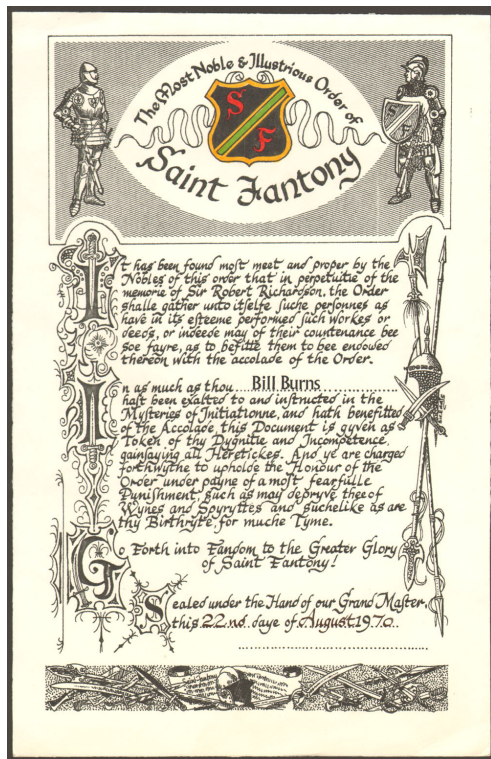 The Most Noble & Illustrious Order of
S
F
Saint Fantony
It has been found most meet and proper by the
Nobles of this order that in perpetuitie of the
memorie of Sir Robert Richardson, the Order
shalle gather unto itselfe suche personnes as
have in its esteeme performed such workes or
deeds, or indeede may of their countenance bee
soe fayre, as to befitte them to bee endowed
thereon with the accolade of the Order.
In as much as thou....Bill Burns....................
hast been exalted to and instructed in the
Mysteries of Initiationne, and hath benefitted
of the Accolade, this Document is gyven as
Token of thy Dygnitie and Incompetence,
gainsaying all Heretickes. And ye are charged
forthwythe to upholde the Honour of the
Order under payne of a most fearfulle
Punishment, such as may depryve thee of
Wynes and Spyryttes and suchelike as are
thy Birthryte, for muche Tyme.
Go Forth into Fandom to the Greater Glory
of Saint Fantony!
Sealed under the Hand of our Grand Master,
this 22nd. daye of August 1970.